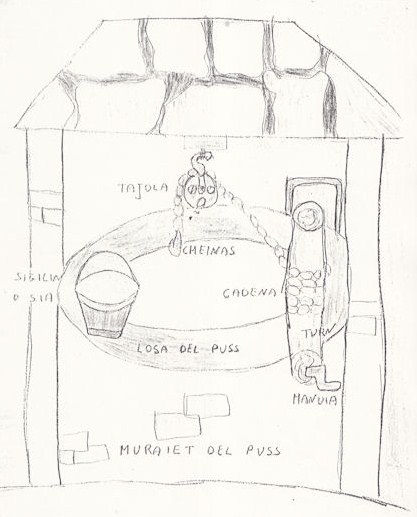 TAJOLA
CHEINAS
SIBILIN
O SIA
CADENA
TURN
LOSA DEL PUSS
MANUIA
MURAIET DEL PUSS